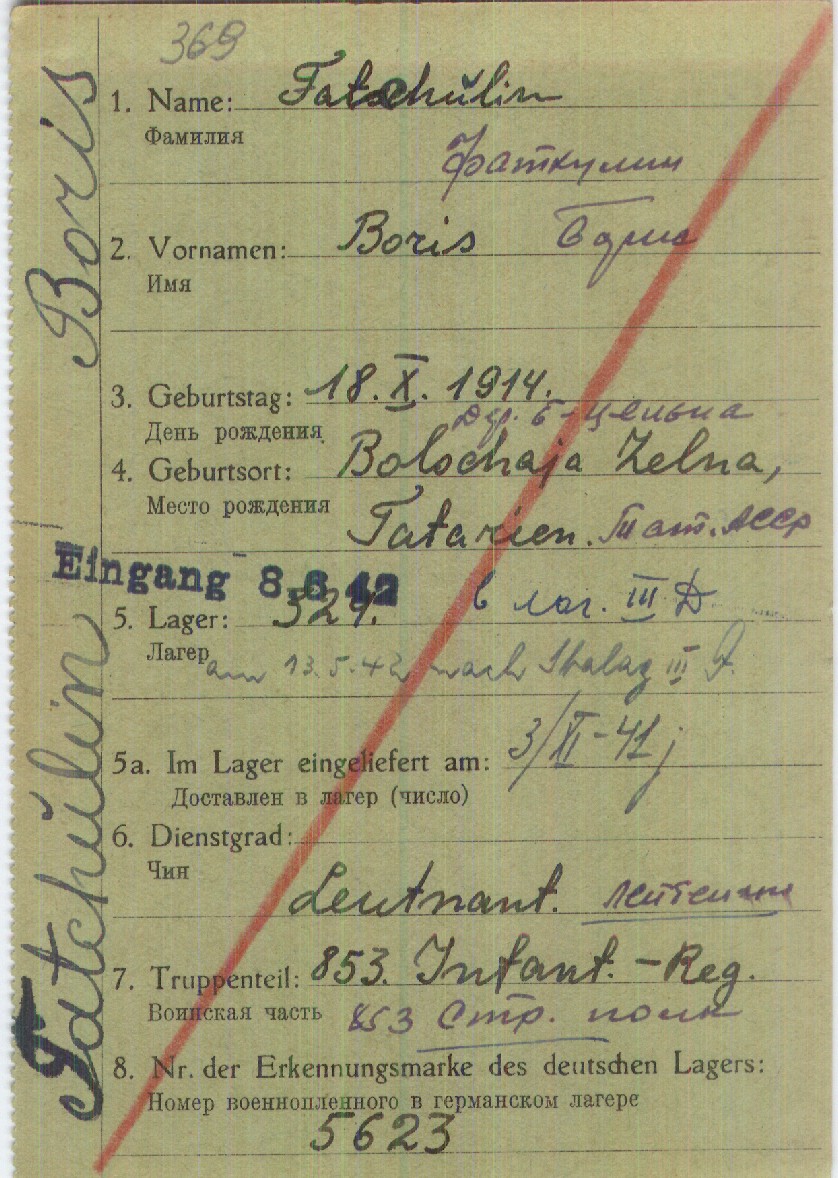 369
1. Name: Fatchulin
Фамилия
Фаткулин
2. Vornamen: Boris Борис
Имя
3. Geburtstag: 18. X. 1914.
День рождения Дер. Б-Цельна
4. Geburtsort: Bolschaja Zelna,
Место рождения
Tatarien. Тат. АССР
Eingang 8.6.42
5. Lager: в лаг. III Д
Лагер
am 13.5.42 nach Stalag III D.
5a. Im Lager eingeliefert am: 3/XI-41
Доставлен в лагер (число)
6. Dienstgrad:
Чин
Leutnant. лейтенант
7. Truppenteil: 853. Infant.-Reg.
Воинская часть 853 Стр. полк
8. Nr. der Erkennungsmarke des deutschen Lagers:
Номер военнопленного в германском лагере
5623
Fatchulin Boris